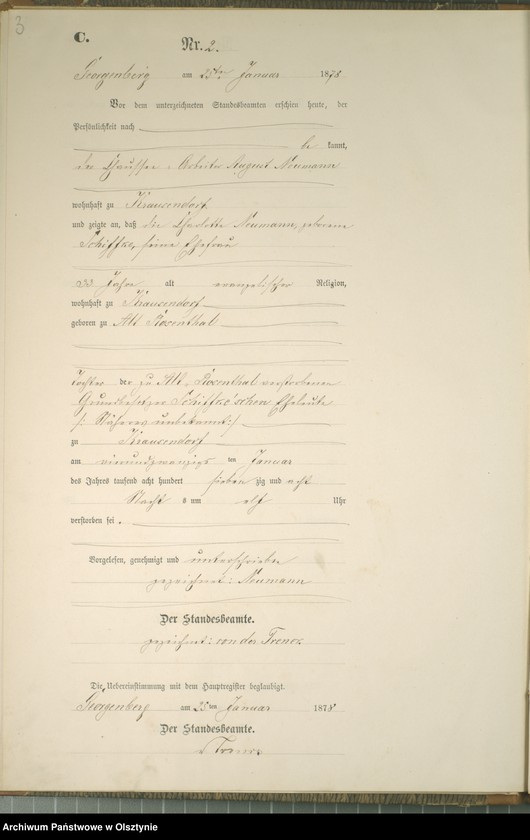 3
C.
Nr. 2.
am 25ten Januar 1878
Vor dem unterzeichneten Standesbeamten erschien heute, der
Persönlichkeit nach
be kannt,
der Chaussee-Arbeiter August Neumann
wohnhaft zu Krausendorf
und zeigte an, daß die Charlotte Neumann, geborene
Schiffke, seine Ehefrau
Jahre alt evangelischer Religion,
wohnhaft zu Krausendorf
geboren zu Alt Rosenthal
Tochter der zu Alt-Rosenthal verstorbenen
Grundbesitzer Schiffke'schen Eheleute
/: Näheres unbekannt :/
zu Krausendorf
am vierundzwanzigsten Januar
des Jahres tausend acht hundert sieben zig und acht
Nachts um elf Uhr
verstorben sei.
Vorgelesen, genehmigt und unterschrieben
gezeichnet: Neumann
Der Standesbeamte.
gezeichnet: von der Trenck
Die Uebereinstimmung mit dem Hauptregister beglaubigt.
am 25ten Januar 1878
Der Standesbeamte.
v Trenck
Archiwum Państwowe w Olsztynie